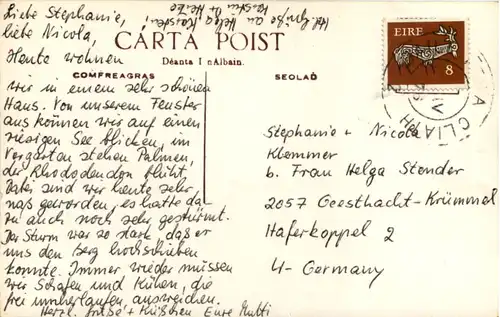 Liebe Stephanie,
liebe Nicola,
Hrl. Grüße an Helga Karsten,
Karsten u. Heike
CÁRTA POIST
Déanta I nAlbain.
COMFREAGRAS
SEOLAÓ
EIRE
8
CLIATH
Heute wohnen
wir in einem sehr schönen
Haus. Von unserem Fenster
aus können wir auf einen
riesigen See blicken, im
Vorgarten stehen Palmen,
der Rhododendon blüht.
Dabei sind wir heute sehr
naß geworden, es hatte da
zu auch noch sehr gestürmt.
Der Sturm war so stark, daß er
uns den Berg hochschieben
konnte. Immer wieder müssen
wir Schafen und Kühen, die
frei umherlaufen, ausweichen.
Herzl. Grüße + Küßchen Eure Mutti
Stephanie + Nicola
Klemmer
b. Frau Helga Stender
2057 Geesthacht-Krümmel
Haferkoppel 2
W-Germany